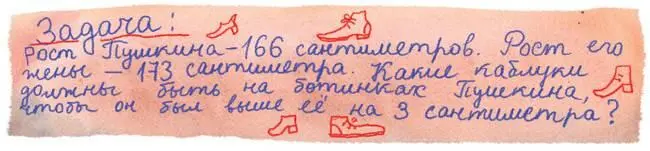 Задача:
Рост Пушкина – 166 сантиметров. Рост его
жены – 173 сантиметра. Какие каблуки
должны быть на ботинках Пушкина,
чтобы он был выше её на 3 сантиметра?